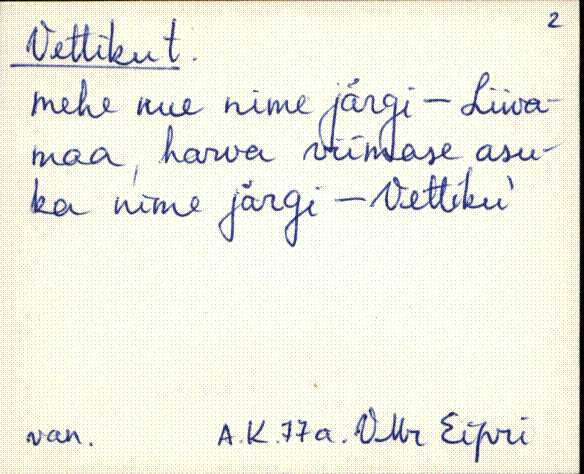 2
Vettikut.
mehe uue nime järgi – Liiva-
maa, harva viimase asu-
ka nime järgi – Vettiku'
van. A.K. 77a. VMr Eipri